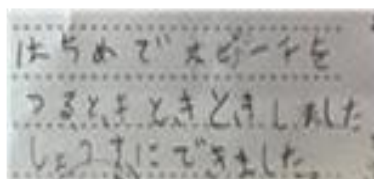 はぢめでスピーチを
つるときどきどきしました
しょうずにできました